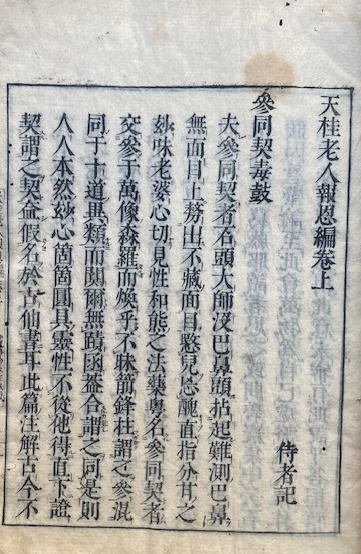 天桂老人報恩編卷上
侍者記
參同契毒鼓
夫參同契者石頭大師沒巴鼻頭拈起難測巴鼻
無面目上莠出不藏面目憨兒恁醜直指外甘之
玅味老婆心切見性和熊之法藥粤名參同契者
交參于萬像森羅而煥乎不昧箭鋒柱謂之參混
同于十道異類而闃爾無蹟函蓋合謂之同是則
人人本然玅心箇箇圓具靈性不從他得直下證
契謂之契葢假名於古仙書耳此篇注解古今不